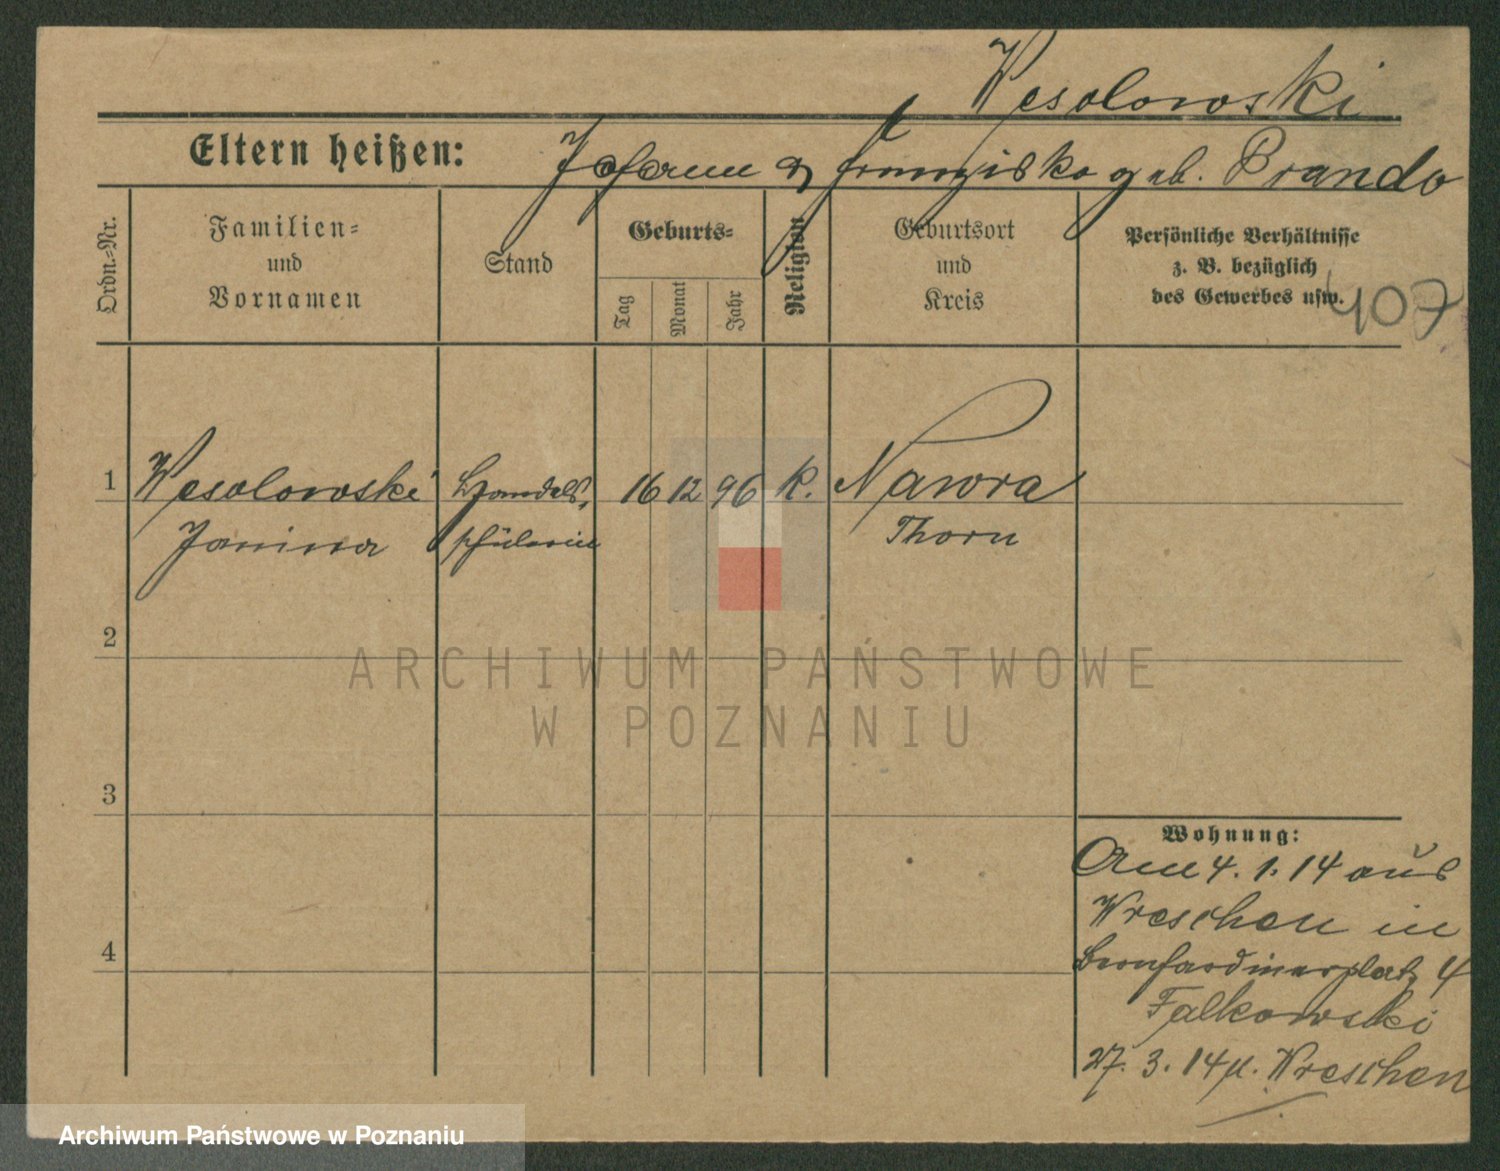 Wesolowski
Eltern heißen: Johann & Franziska geb. Prando
Ordn.-Nr.
Familien-
und
Vornamen
Stand
Geburts-
Tag
Monat
Jahr
Religion
Geburtsort
und
Kreis
Persönliche Verhältnisse
z. B. bezüglich
des Gewerbes usw.
407
1 Wesolowski Handels, 16 12 96 k. Nawra
Janina schülerin Thorn
2
ARCHIWUM PAŃSTWOWE
W POZNANIU
3
Wohnung:
Am 4. 1. 14 aus
Wreschen in
4
Bernhardinerplatz 4
Falkowski
27. 3. 14 n. Wreschen
Archiwum Państwowe w Poznaniu